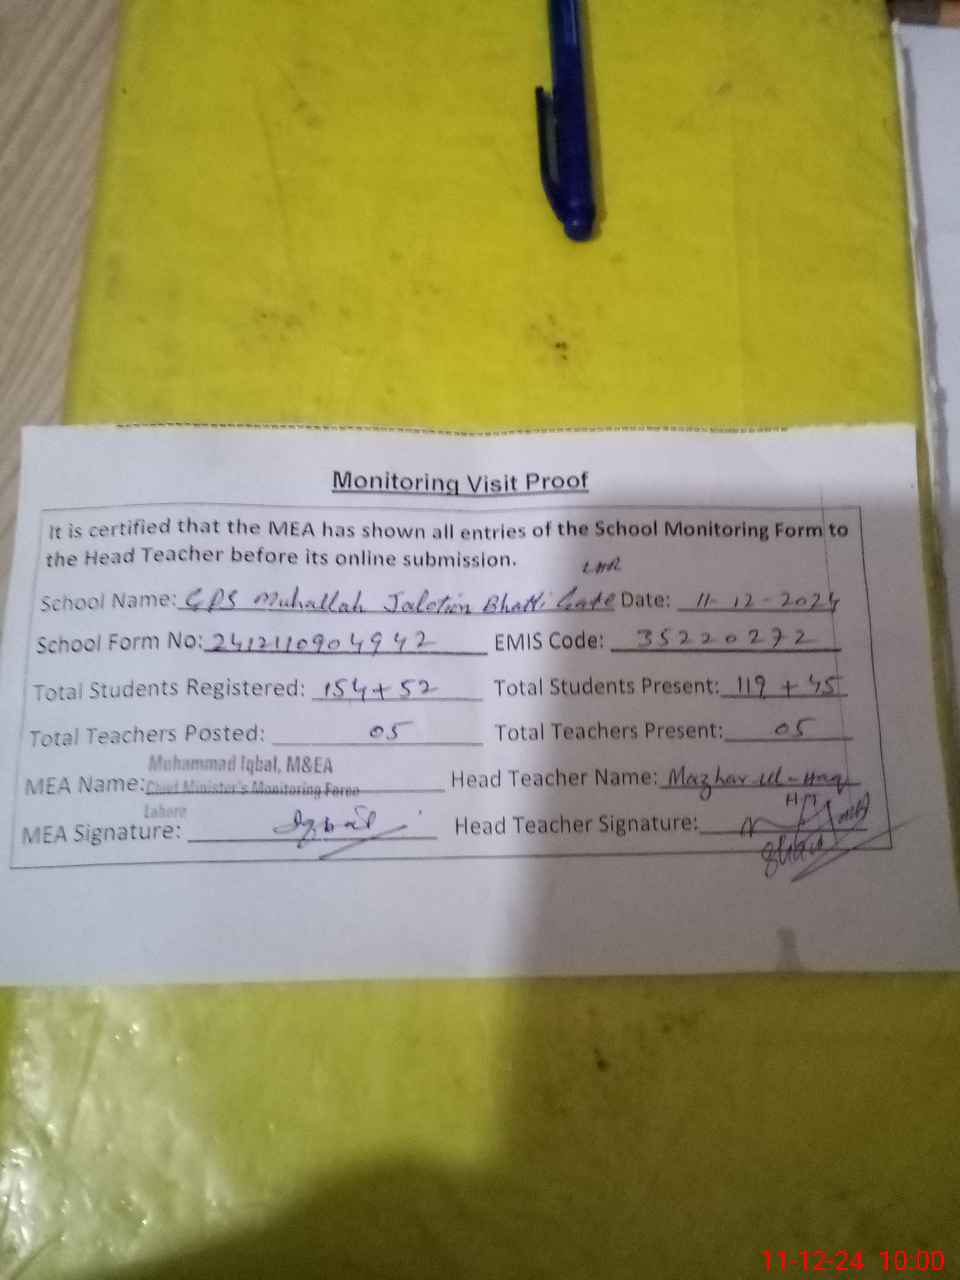 Monitoring Visit Proof
It is certified that the MEA has shown all entries of the School Monitoring Form to
the Head Teacher before its online submission.
LHR
School Name: GPS Muhallah Jalotian Bhatti Gate Date: 11-12-2024
School Form No: 2412110904942 EMIS Code: 35220272
Total Students Registered: 154+52 Total Students Present: 119 + 45
Total Teachers Posted: 05 Total Teachers Present: 05
Muhammad Iqbal, M&EA
MEA Name: Chief Minister's Monitoring Force Head Teacher Name: Mazhar-ul-Haq
Lahore
MEA Signature: Iqbal Head Teacher Signature:
11-12-24 10:00